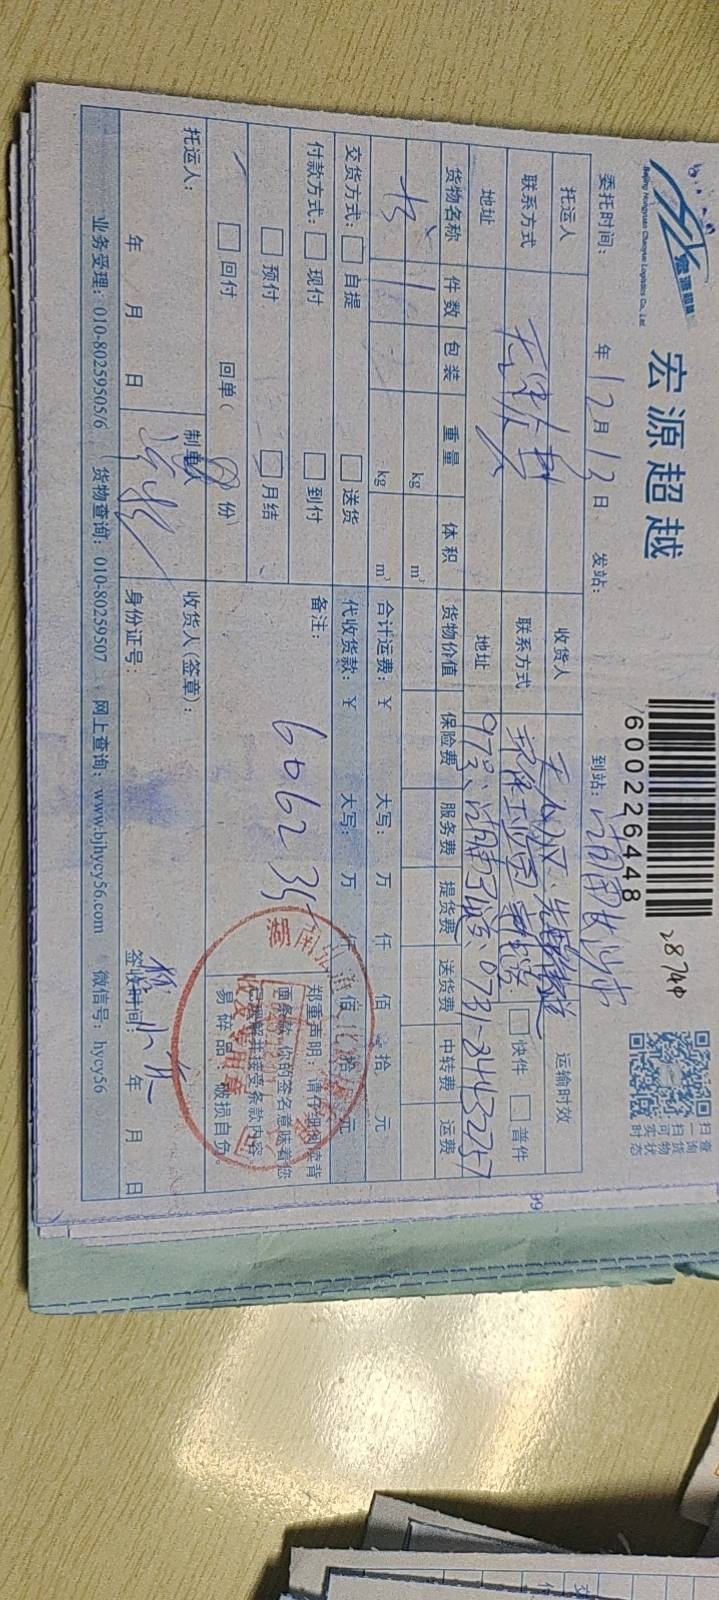 宏源超越
Beijing Hongyuan Chaoyue Logistics Co., Ltd
宏源超越
600226448
28740
扫一扫可实时
查询货物状态
委托时间: 年 12 月 13 日 发站: 到站: 湖南长沙市
托运人 收货人 运输时效
联系方式 联系方式 快件 普件
地址 地址 97号、 0731-84432757
货物名称 件数 包装 重量 体积 货物价值 保险费 服务费 提货费 送货费 中转费 运费
书 1 kg m³
kg m³ 合计运费: ¥ 大写: 万 仟 佰 拾 元
交货方式: 自提 送货 代收货款: ¥ 大写: 万 仟 佰 拾 元
付款方式: 现付 到付 备注:
预付 月结 606235
回付 回单( 份)
郑重声明:请仔细阅读背
面条款,你的签名意味着您
已理解并接受条款内容
易碎品,破损自负。
收发专用章
托运人: 制单人 收货人(签章):
年 月 日 身份证号: 签收时间: 年 月 日
业务受理: 010-80259505/6 货物查询: 010-80259507 网上查询: www.bjhycy56.com 微信号: hycy56
99